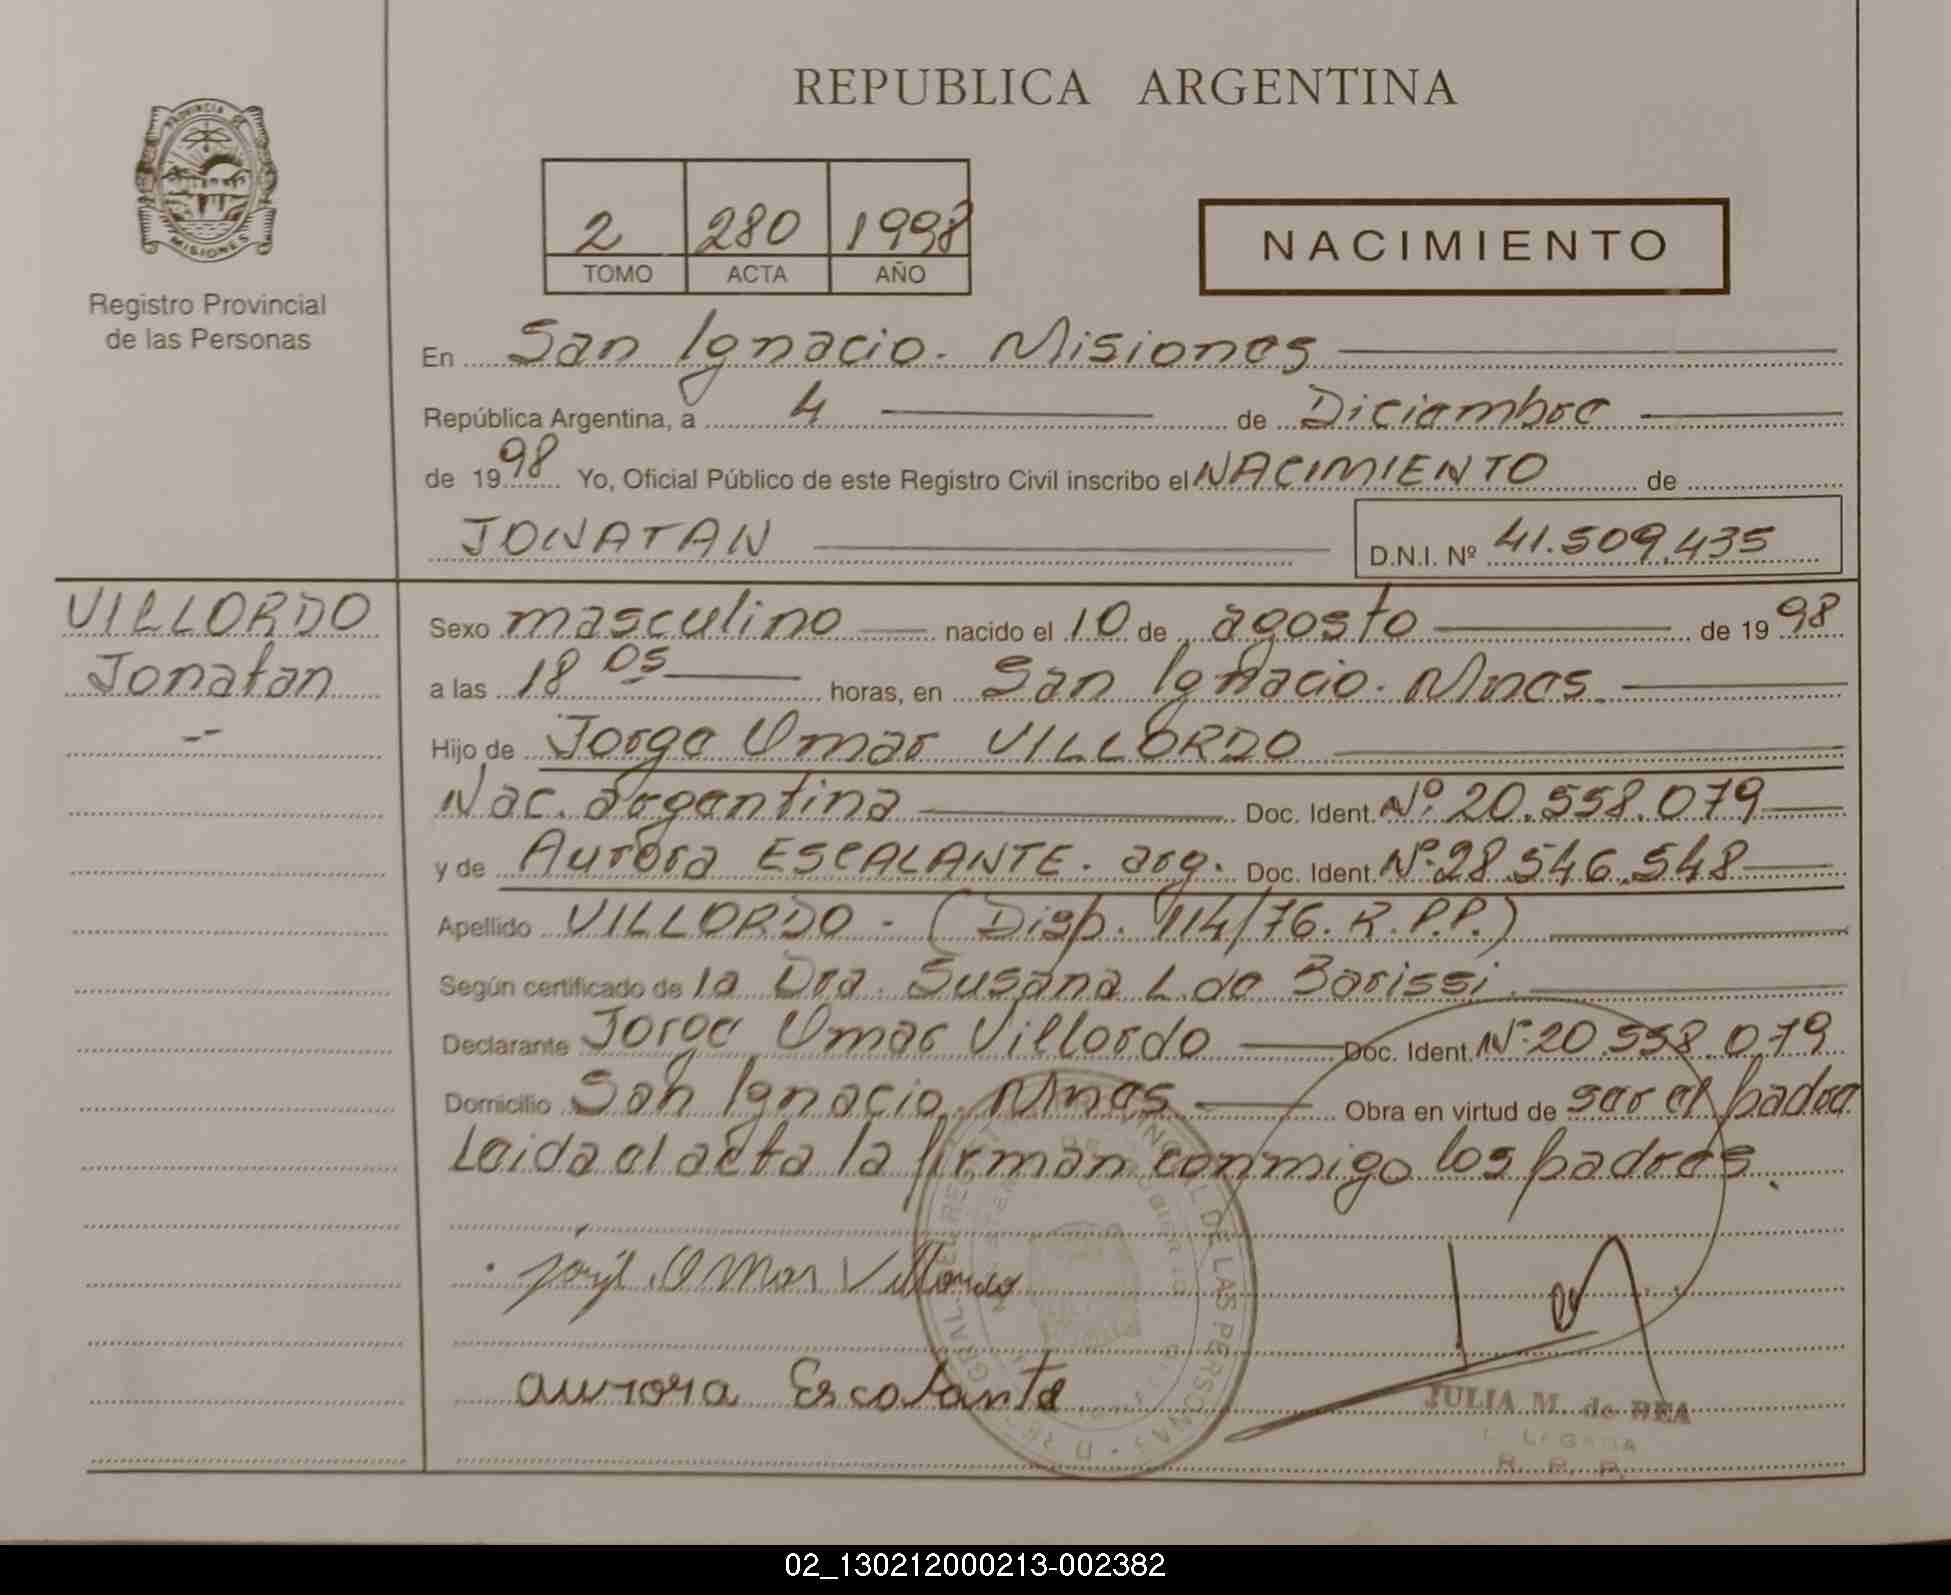 REPUBLICA ARGENTINA
PROVINCIA DE
MISIONES
Registro Provincial
de las Personas
2 280 1998
TOMO ACTA AÑO
NACIMIENTO
En San Ignacio. Misiones
República Argentina, a 4 de Diciembre
de 1998 Yo, Oficial Público de este Registro Civil inscribo el NACIMIENTO de
JONATAN D.N.I. Nº 41.509.435
VILLORDO
Jonatan
--
Sexo masculino nacido el 10 de agosto de 1998
a las 18 05 horas, en San Ignacio. Mnes.
Hijo de Jorge Omar VILLORDO
Nac. argentina Doc. Ident. Nº 20.558.079
y de Aurora ESCALANTE. arg. Doc. Ident. Nº 28.546.548
Apellido VILLORDO - (Disp. 114/76. R.P.P.)
Según certificado de la Dra. Susana L. de Barissi.
Declarante Jorge Omar Villordo Doc. Ident. Nº 20.558.079
Domicilio San Ignacio. Mnes Obra en virtud de ser el padre
Leida el acta la firman conmigo los padres.
Jorge Omar Villordo
aurora Escalante
JULIA M. de REA
R. P. P.
02_130212000213-002382